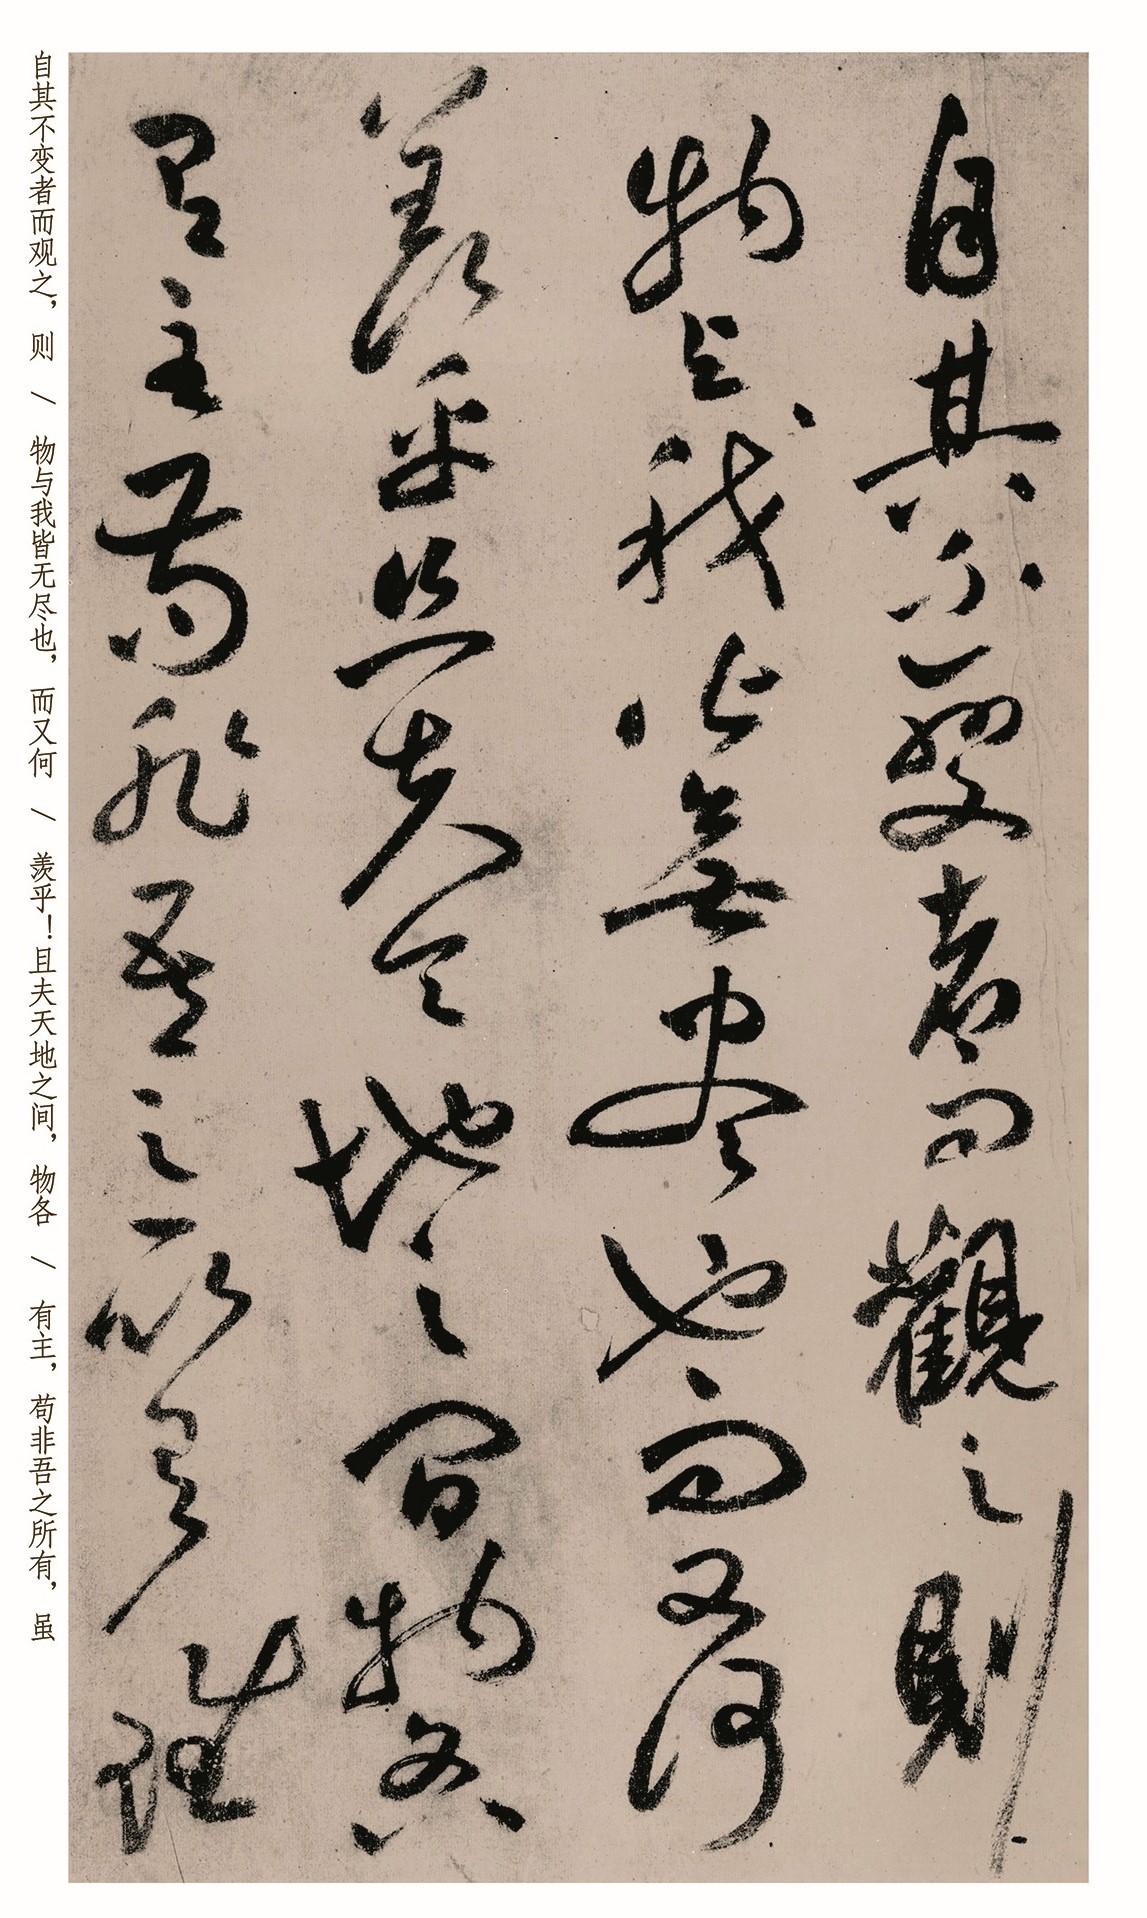 自其不變者而觀之則
物與我皆無盡也而又何
羨乎且夫天地之間物各
有主苟非吾之所有雖
自其不变者而观之，则 \ 物与我皆无尽也，而又何 \ 羡乎！且夫天地之间，物各 \ 有主，苟非吾之所有，虽